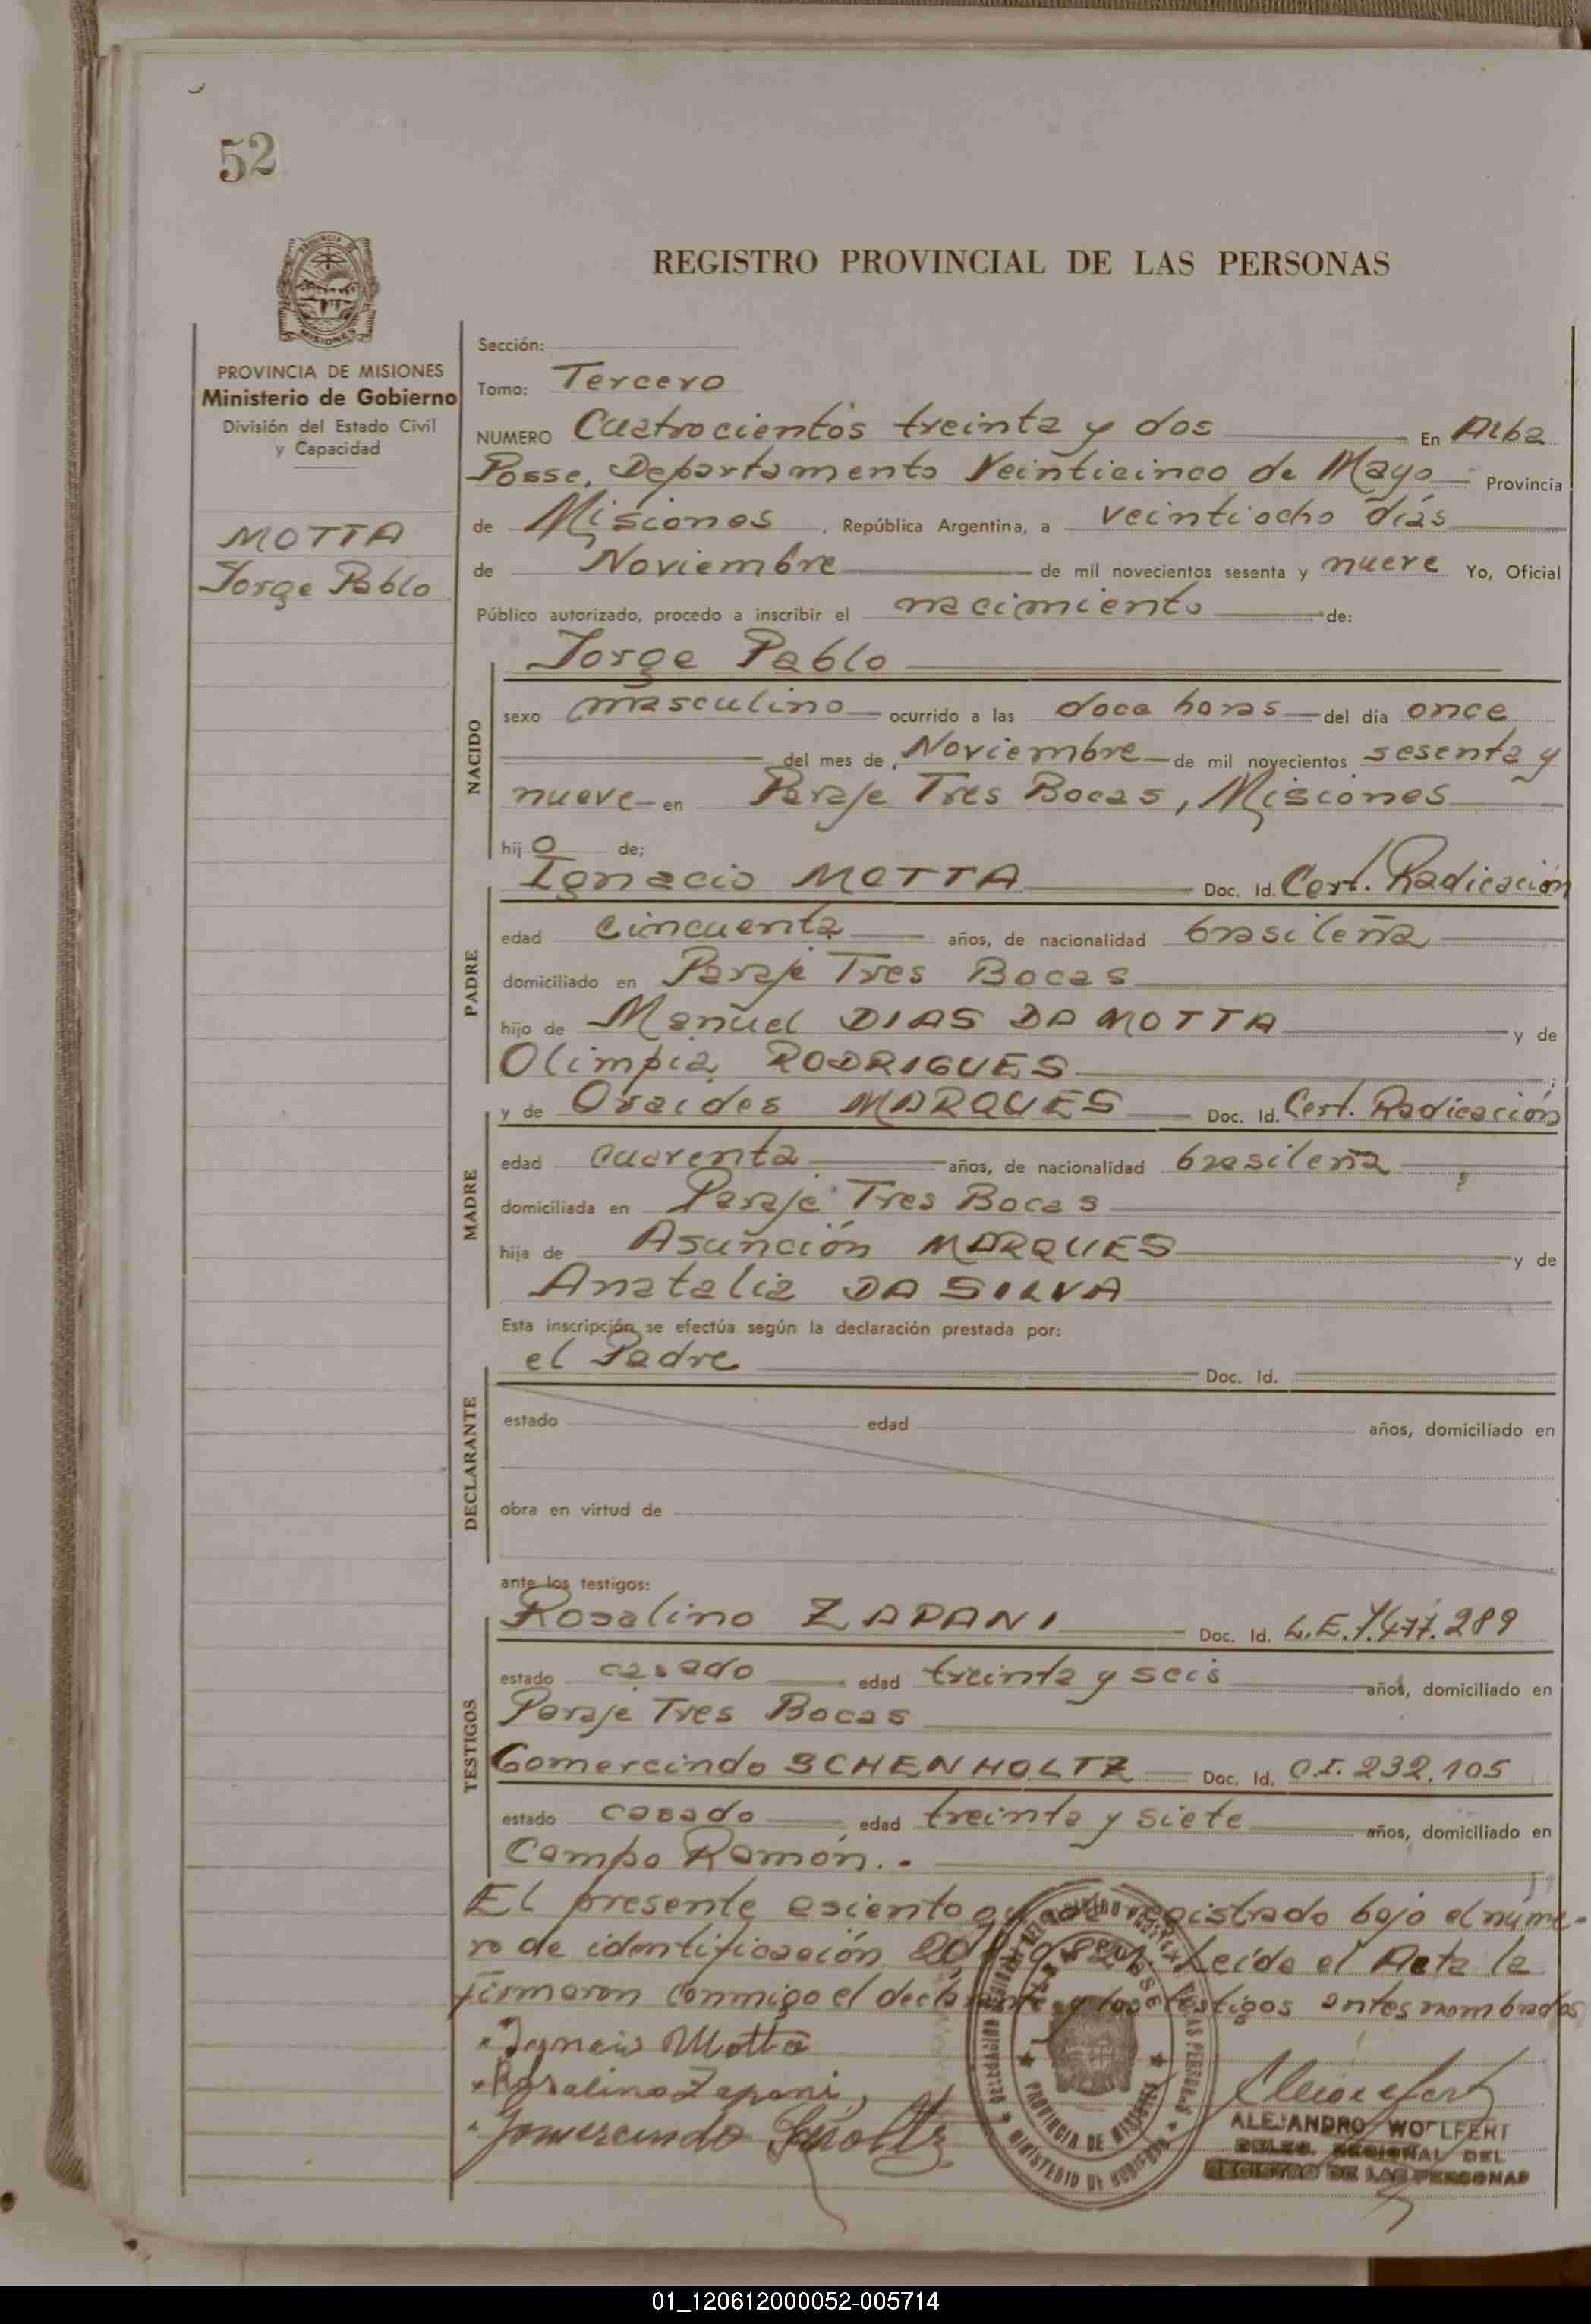 52
REGISTRO PROVINCIAL DE LAS PERSONAS
PROVINCIA DE MISIONES
Ministerio de Gobierno
División del Estado Civil
y Capacidad
MOTTA
Jorge Pablo
Sección:
Tomo: Tercero
NUMERO Cuatrocientos treinta y dos En Alba
Posse, Departamento Veinticinco de Mayo Provincia
de Misiones, República Argentina, a veintiocho días
de Noviembre de mil novecientos sesenta y nueve Yo, Oficial
Público autorizado, procedo a inscribir el nacimiento de:
Jorge Pablo
NACIDO
sexo masculino ocurrido a las doce horas del día once
del mes de Noviembre de mil novecientos sesenta y
nueve en Paraje Tres Bocas, Misiones
hijo de;
Ignacio MOTTA Doc. Id. Cert. Radicación
PADRE
edad cincuenta años, de nacionalidad brasileña
domiciliado en Paraje Tres Bocas
hijo de Manuel DIAS DA MOTTA y de
Olimpia RODRIGUES
y de Oraides MARQUES Doc. Id. Cert. Radicación
MADRE
edad cuarenta años, de nacionalidad brasileña
domiciliada en Paraje Tres Bocas
hija de Asunción MARQUES y de
Anatalia DA SILVA
Esta inscripción se efectúa según la declaración prestada por:
el Padre Doc. Id.
DECLARANTE
estado edad años, domiciliado en
obra en virtud de
ante los testigos:
Rosalino ZAPANI Doc. Id. L.E. 7.477.289
TESTIGOS
estado casado edad treinta y seis años, domiciliado en
Paraje Tres Bocas
Gomercindo SCHENHOLTZ Doc. Id. C.I. 232.105
estado casado edad treinta y siete años, domiciliado en
Campo Ramón.-
El presente asiento queda registrado bajo el núme-
ro de identificación Leída el Acta la
firmaron conmigo el declarante y los testigos antes nombrados
Ignacio Motta
Rosalino Zapani
Gomercindo
PROVINCIA DE MISIONES
MINISTERIO DE GOBIERNO
ALEJANDRO WOLFERT
REGIONAL DEL
REGISTRO DE LAS PERSONAS
01_120612000052-005714